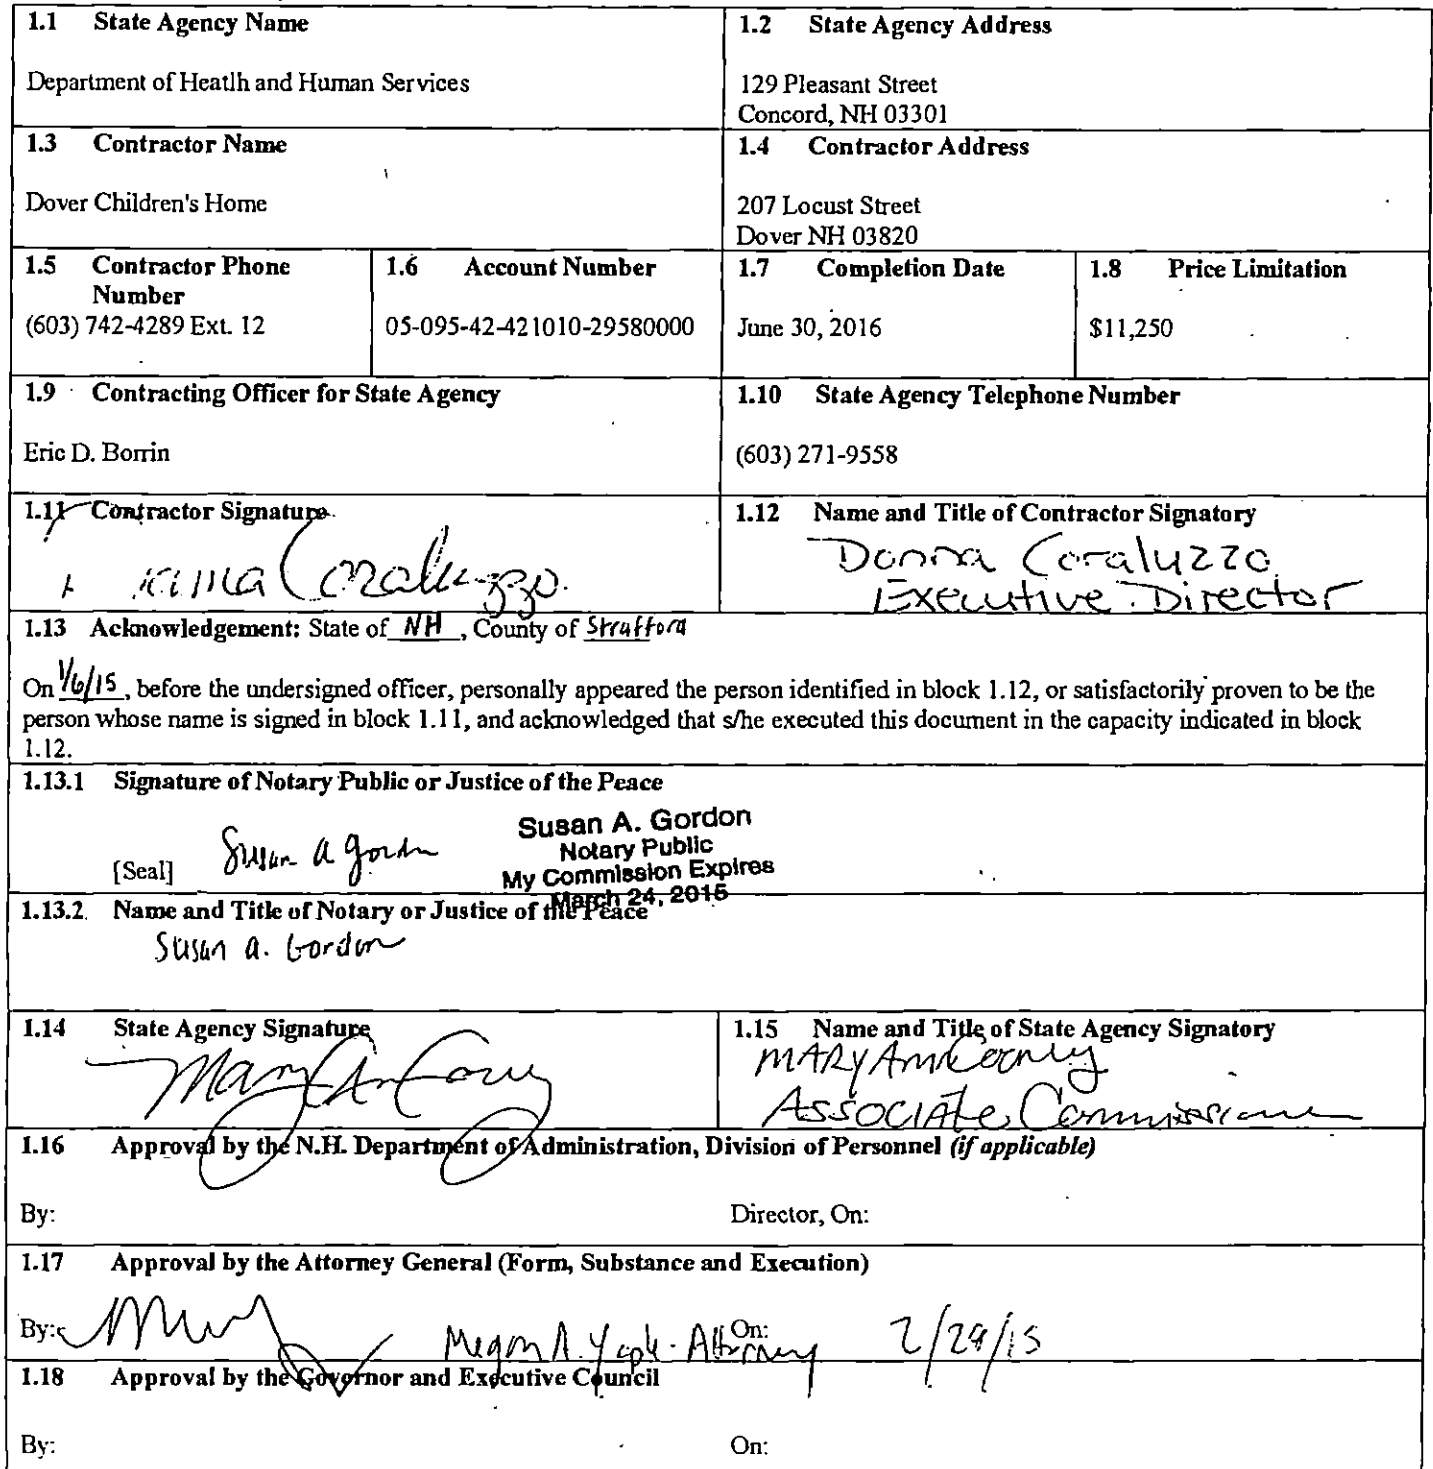 1.1 State Agency Name
Department of Heatlh and Human Services
1.2 State Agency Address
129 Pleasant Street
Concord, NH 03301
1.3 Contractor Name
Dover Children's Home
1.4 Contractor Address
207 Locust Street
Dover NH 03820
1.5 Contractor Phone
Number
(603) 742-4289 Ext. 12
1.6 Account Number
05-095-42-421010-29580000
1.7 Completion Date
June 30, 2016
1.8 Price Limitation
$11,250
1.9 Contracting Officer for State Agency
Eric D. Borrin
1.10 State Agency Telephone Number
(603) 271-9558
1.11 Contractor Signature
Coraluzzo
1.12 Name and Title of Contractor Signatory
Donna Coraluzzo
Executive Director
1.13 Acknowledgement: State of NH, County of Strafford
On 1/6/15, before the undersigned officer, personally appeared the person identified in block 1.12, or satisfactorily proven to be the
person whose name is signed in block 1.11, and acknowledged that s/he executed this document in the capacity indicated in block
1.12.
1.13.1 Signature of Notary Public or Justice of the Peace
[Seal] Susan A Gordon
Susan A. Gordon
Notary Public
My Commission Expires
March 24, 2015
1.13.2 Name and Title of Notary or Justice of the Peace
Susan A. Gordon
1.14 State Agency Signature
Mary Ann
1.15 Name and Title of State Agency Signatory
Mary Ann
Associate Commissioner
1.16 Approval by the N.H. Department of Administration, Division of Personnel (if applicable)
By:
Director, On:
1.17 Approval by the Attorney General (Form, Substance and Execution)
By: Megan A. - Attorney On:
1.18 Approval by the Governor and Executive Council
By:
On: